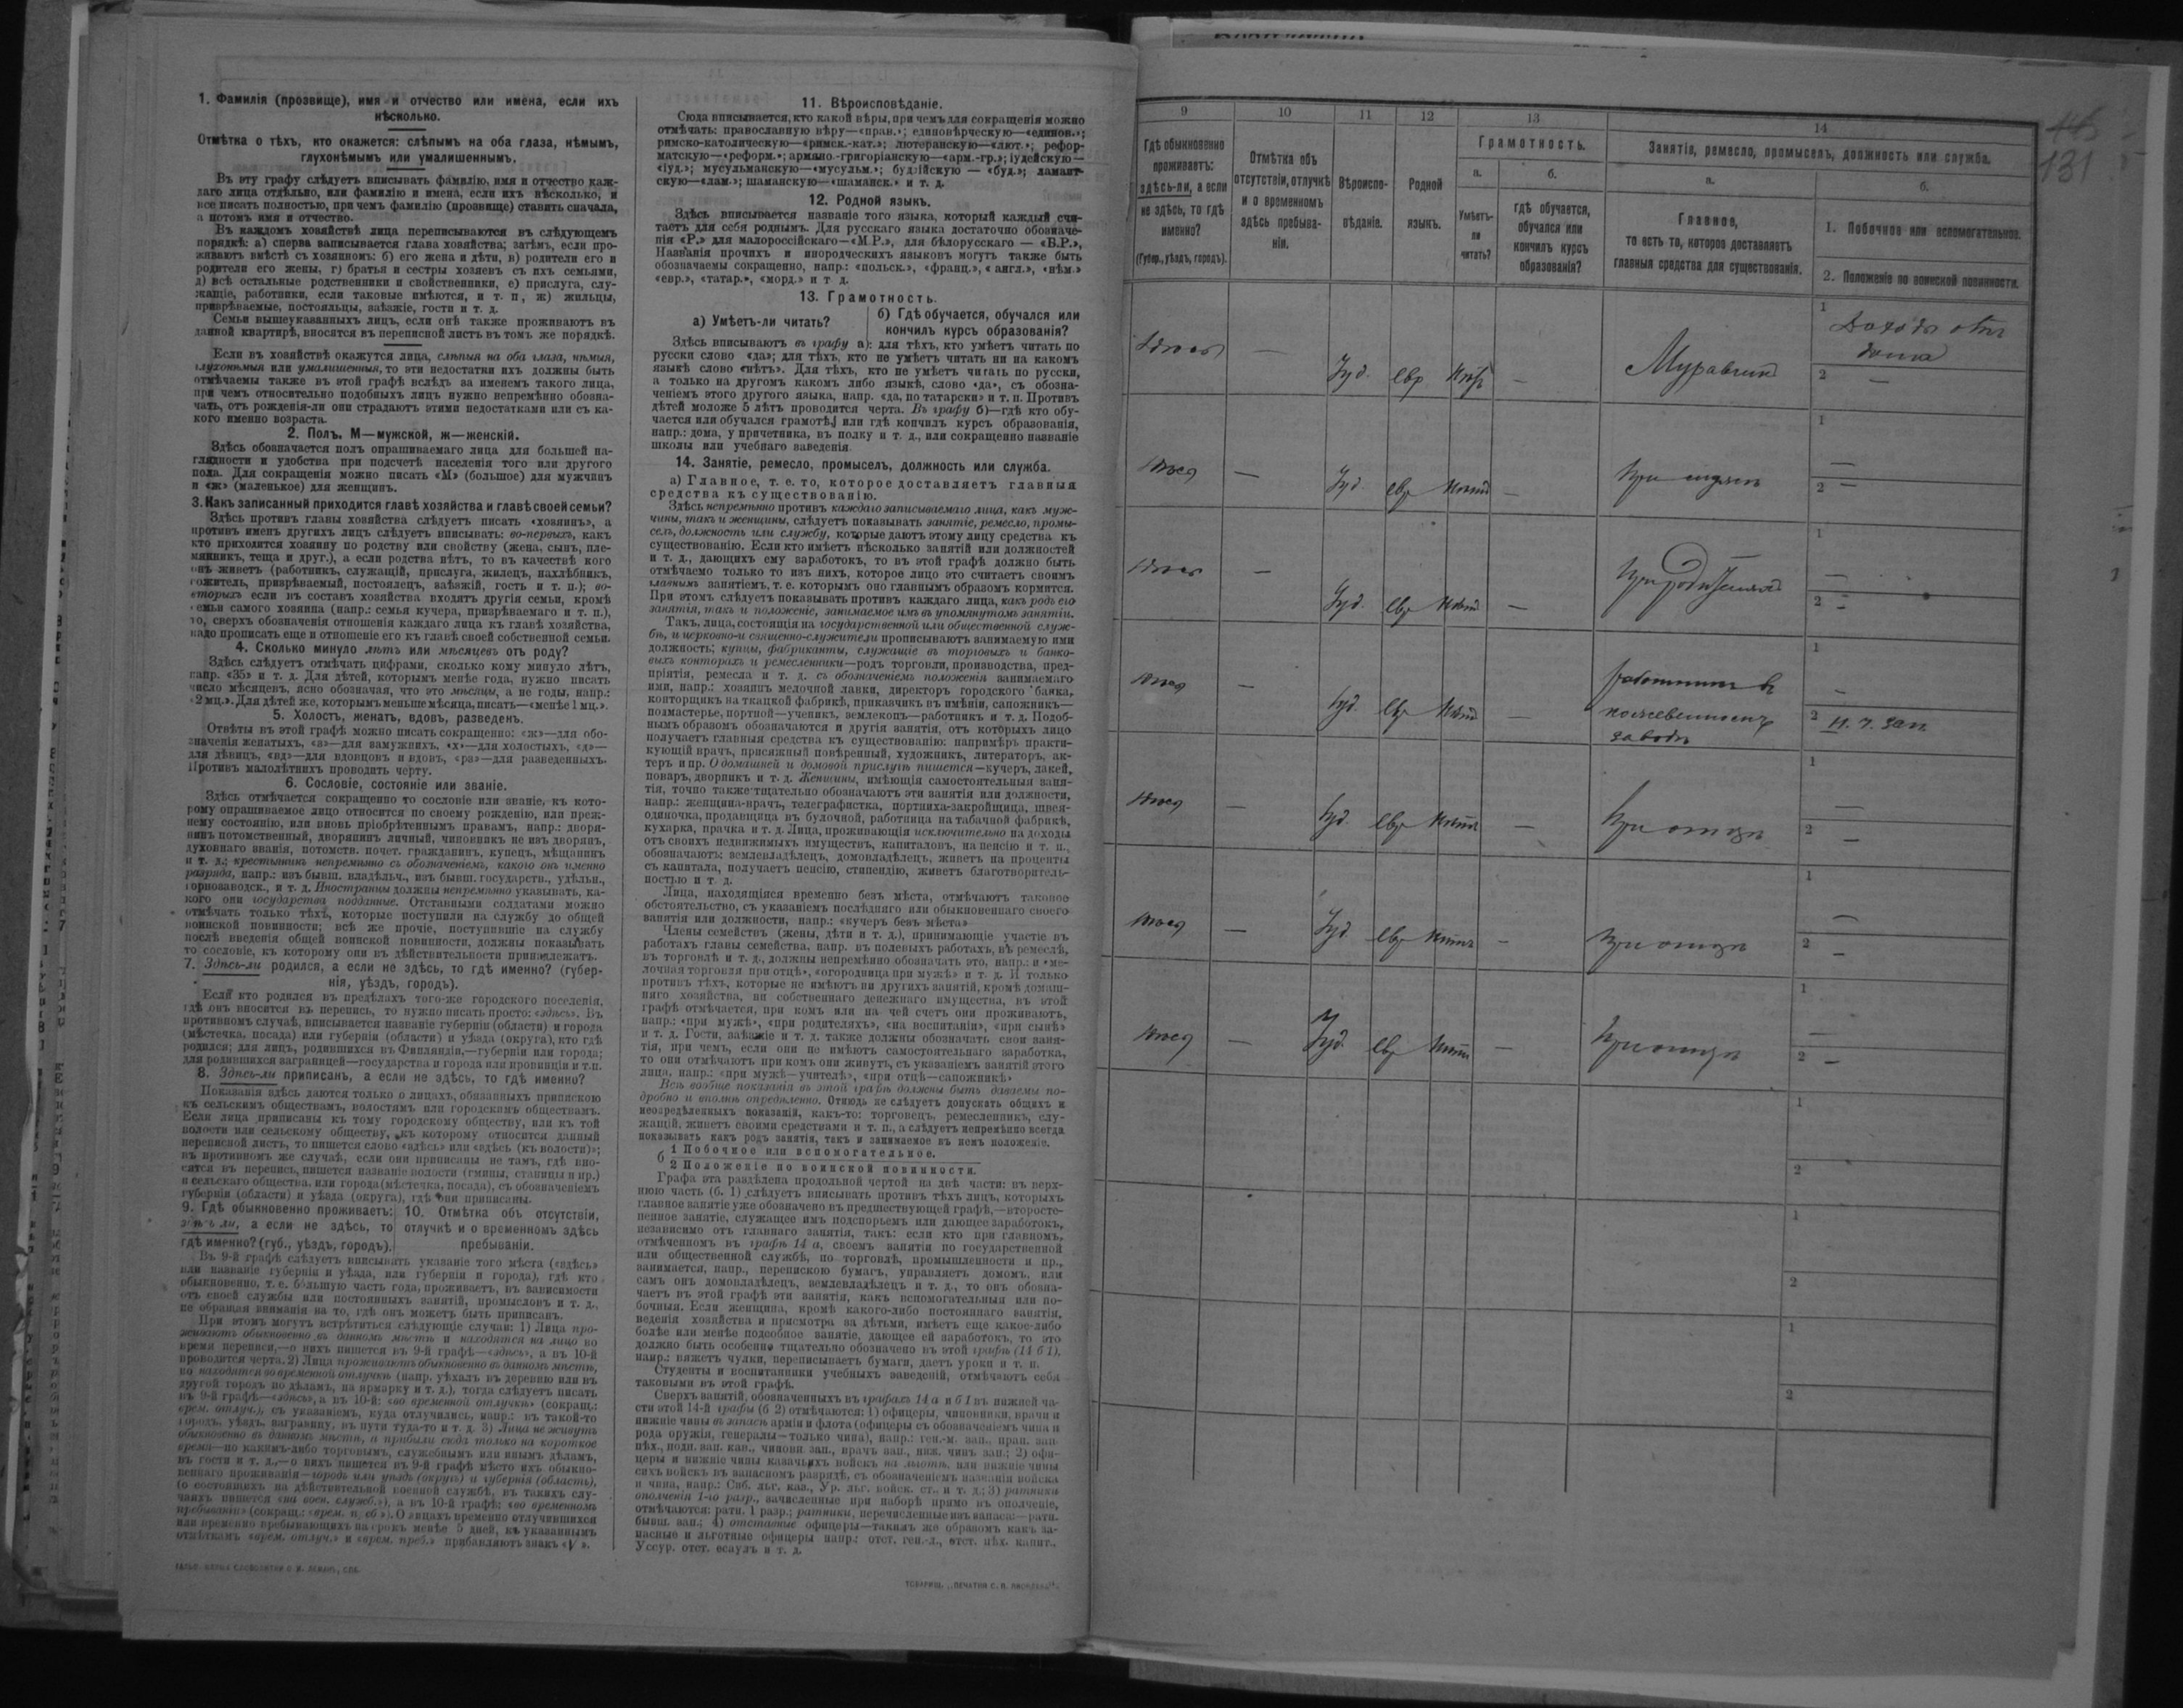 1. Фамилія (прозвище), имя и отчество или имена, если ихъ
нѣсколько.
Отмѣтка о тѣхъ, кто окажется: слѣпымъ на оба глаза, нѣмымъ,
глухонѣмымъ или умалишеннымъ.
Въ эту графу слѣдуетъ вписывать фамилію, имя и отчество каж-
даго лица отдѣльно, или фамилію и имена, если ихъ нѣсколько, и
все писать полностью, при чемъ фамилію (прозвище) ставить сначала,
а потомъ имя и отчество.
Въ каждомъ хозяйствѣ лица переписываются въ слѣдующемъ
порядкѣ: а) сперва записывается глава хозяйства; затѣмъ, если про-
живаютъ вмѣстѣ съ хозяиномъ: б) его жена и дѣти, в) родители его и
родители его жены, г) братья и сестры хозяевъ съ ихъ семьями,
д) всѣ остальные родственники и свойственники, е) прислуга, слу-
жащіе, работники, если таковые имѣются, и т. п, ж) жильцы,
призрѣваемые, постояльцы, заѣзжіе, гости и т. д.
Семьи вышеуказанныхъ лицъ, если онѣ также проживаютъ въ
данной квартирѣ, вносятся въ переписной листъ въ томъ же порядкѣ.
Если въ хозяйствѣ окажутся лица, слѣпыя на оба глаза, нѣмыя,
глухонѣмыя или умалишенныя, то эти недостатки ихъ должны быть
отмѣчаемы также въ этой графѣ вслѣдъ за именемъ такого лица,
при чемъ относительно подобныхъ лицъ нужно непремѣнно обозна-
чать, отъ рожденія-ли они страдаютъ этими недостатками или съ ка-
кого именно возраста.
2. Полъ. М—мужской, ж—женскій.
Здѣсь обозначается полъ опрашиваемаго лица для большей на-
глядности и удобства при подсчетѣ населенія того или другого
пола. Для сокращенія можно писать «М» (большое) для мужчинъ
и «ж» (маленькое) для женщинъ.
3. Какъ записанный приходится главѣ хозяйства и главѣ своей семьи?
Здѣсь противъ главы хозяйства слѣдуетъ писать «хозяинъ», а
противъ именъ другихъ лицъ слѣдуетъ вписывать: во-первыхъ, какъ
кто приходится хозяину по родству или свойству (жена, сынъ, пле-
мянникъ, теща и друг.), а если родства нѣтъ, то въ качествѣ кого
онъ живетъ (работникъ, служащій, прислуга, жилецъ, нахлѣбникъ,
сожитель, призрѣваемый, постоялецъ, заѣзжій, гость и т. п.); во-
вторыхъ если въ составъ хозяйства входятъ другія семьи, кромѣ
семьи самого хозяина (напр.: семья кучера, призрѣваемаго и т. п.),
то, сверхъ обозначенія отношенія каждаго лица къ главѣ хозяйства,
надо прописать еще и отношеніе его къ главѣ своей собственной семьи.
4. Сколько минуло лѣтъ или мѣсяцевъ отъ роду?
Здѣсь слѣдуетъ отмѣчать цифрами, сколько кому минуло лѣтъ,
напр. «35» и т. д. Для дѣтей, которымъ менѣе года, нужно писать
число мѣсяцевъ, ясно обозначая, что это мѣсяцы, а не годы, напр.:
«2 мц.». Для дѣтей же, которымъ меньше мѣсяца, писать—«менѣе 1 мц.».
5. Холостъ, женатъ, вдовъ, разведенъ.
Отвѣты въ этой графѣ можно писать сокращенно: «ж»—для обо-
значенія женатыхъ, «з»—для замужнихъ, «х»—для холостыхъ, «д»—
для дѣвицъ, «вд»—для вдовцовъ и вдовъ, «рз»—для разведенныхъ.
Противъ малолѣтнихъ проводить черту.
6. Сословіе, состояніе или званіе.
Здѣсь отмѣчается сокращенно то сословіе или званіе, къ кото-
рому опрашиваемое лицо относится по своему рожденію, или преж-
нему состоянію, или вновь пріобрѣтеннымъ правамъ, напр.: дворя-
нинъ потомственный, дворянинъ личный, чиновникъ не изъ дворянъ,
духовнаго званія, потомств. почет. гражданинъ, купецъ, мѣщанинъ
и т. д.; крестьянинъ непремѣнно съ обозначеніемъ, какого онъ именно
разряда, напр.: изъ бывш. владѣльч., изъ бывш. государств., удѣльн.,
горнозаводск., и т. д. Иностранцы должны непремѣнно указывать, ка-
кого они государства подданные. Отставными солдатами можно
отмѣчать только тѣхъ, которые поступили на службу до общей
воинской повинности; всѣ же прочіе, поступившіе на службу
послѣ введенія общей воинской повинности, должны показывать
то сословіе, къ которому они въ дѣйствительности принадлежатъ.
7. Здѣсь-ли родился, а если не здѣсь, то гдѣ именно? (губер-
нія, уѣздъ, городъ).
Если кто родился въ предѣлахъ того-же городского поселенія,
гдѣ онъ вносится въ перепись, то нужно писать просто: «здѣсь». Въ
противномъ случаѣ, вписывается названіе губерніи (области) и города
(мѣстечка, посада) или губерніи (области) и уѣзда (округа), кто гдѣ
родился; для лицъ, родившихся въ Финляндіи,—губерніи или города;
для родившихся заграницей—государства и города или провинціи и т.п.
8. Здѣсь-ли приписанъ, а если не здѣсь, то гдѣ именно?
Показанія здѣсь даются только о лицахъ, обязанныхъ припискою
къ сельскимъ обществамъ, волостямъ или городскимъ обществамъ.
Если лица приписаны къ тому городскому обществу, или къ той
волости или сельскому обществу, къ которому относится данный
переписной листъ, то пишется слово «здѣсь» или «здѣсь (къ волости)»;
въ противномъ же случаѣ, если они приписаны не тамъ, гдѣ вно-
сятся въ перепись, пишется названіе волости (гмины, станицы и пр.)
и сельскаго общества, или города (мѣстечка, посада), съ обозначеніемъ
губерніи (области) и уѣзда (округа), гдѣ они приписаны.
9. Гдѣ обыкновенно проживаетъ:
здѣсь ли, а если не здѣсь, то
гдѣ именно? (губ., уѣздъ, городъ).
10. Отмѣтка объ отсутствіи,
отлучкѣ и о временномъ здѣсь
пребываніи.
Въ 9-й графѣ слѣдуетъ вписывать указаніе того мѣста («здѣсь»
или названіе губерніи и уѣзда, или губерніи и города), гдѣ кто
обыкновенно, т. е. большую часть года, проживаетъ, въ зависимости
отъ своей службы или постоянныхъ занятій, промысловъ и т. д.,
не обращая вниманія на то, гдѣ онъ можетъ быть приписанъ.
При этомъ могутъ встрѣтиться слѣдующіе случаи: 1) Лица про-
живаютъ обыкновенно въ данномъ мѣстѣ и находятся на лицо во
время переписи,—о нихъ пишется въ 9-й графѣ—«здѣсь», а въ 10-й
проводится черта. 2) Лица проживаютъ обыкновенно въ данномъ мѣстѣ,
но находятся во временной отлучкѣ (напр. уѣхалъ въ деревню или въ
другой городъ по дѣламъ, на ярмарку и т. д.), тогда слѣдуетъ писать
въ 9-й графѣ—«здѣсь», а въ 10-й: «во временной отлучкѣ» (сокращ.:
врем. отлуч.), съ указаніемъ, куда отлучились, напр.: въ такой-то
городъ, уѣздъ, заграницу, въ пути туда-то и т. д. 3) Лица не живутъ
обыкновенно въ данномъ мѣстѣ, а прибыли сюда только на короткое
время—по какимъ-либо торговымъ, служебнымъ или инымъ дѣламъ,
въ гости и т. д.,—о нихъ пишется въ 9-й графѣ мѣсто ихъ обыкно-
веннаго проживанія—городъ или уѣздъ (округъ) и губернія (область),
(о состоящихъ на дѣйствительной военной службѣ, въ такихъ слу-
чаяхъ пишется «на воен. служб.»), а въ 10-й графѣ: «во временномъ
пребываніи» (сокращ.: «врем. преб.»). О лицахъ временно отлучившихся
или временно пребывающихъ на срокъ менѣе 5 дней, къ указаннымъ
отмѣткамъ «врем. отлуч.» и «врем. преб.» прибавляютъ знакъ «V».
11. Вѣроисповѣданіе.
Сюда вписывается, кто какой вѣры, при чемъ для сокращенія можно
отмѣчать: православную вѣру—«прав.»; единовѣрческую—«единов.»;
римско-католическую—«римск.-кат.»; лютеранскую—«лют.»; рефор-
матскую—«реформ.»; армяно-григоріанскую—«арм.-гр.»; іудейскую—
«іуд.»; мусульманскую—«мусульм.»; буддійскую — «буд.»; ламаит-
скую—«лам.»; шаманскую—«шаманск.» и т. д.
12. Родной языкъ.
Здѣсь вписывается названіе того языка, который каждый счи-
таетъ для себя роднымъ. Для русскаго языка достаточно обозначе-
нія «Р.» для малороссійскаго—«М.Р.», для бѣлорусскаго — «Б.Р.»,
Названія прочихъ и инородческихъ языковъ могутъ также быть
обозначаемы сокращенно, напр.: «польск.», «франц.», «англ.», «нѣм.»
«евр.», «татар.», «морд.» и т. д.
13. Грамотность.
а) Умѣетъ-ли читать?
б) Гдѣ обучается, обучался или
кончилъ курсъ образованія?
Здѣсь вписываютъ въ графу а): для тѣхъ, кто умѣетъ читать по
русски слово «да»; для тѣхъ, кто не умѣетъ читать ни на какомъ
языкѣ слово «нѣтъ». Для тѣхъ, кто не умѣетъ читать по русски,
а только на другомъ какомъ либо языкѣ, слово «да», съ обозна-
ченіемъ этого другого языка, напр. «да, по татарски» и т. п. Противъ
дѣтей моложе 5 лѣтъ проводится черта. Въ графу б)—гдѣ кто обу-
чается или обучался грамотѣ, или гдѣ кончилъ курсъ образованія,
напр.: дома, у причетника, въ полку и т. д., или сокращенно названіе
школы или учебнаго заведенія.
14. Занятіе, ремесло, промыселъ, должность или служба.
а) Главное, т. е. то, которое доставляетъ главныя
средства къ существованію.
Здѣсь непремѣнно противъ каждаго записываемаго лица, какъ муж-
чины, такъ и женщины, слѣдуетъ показывать занятіе, ремесло, промы-
селъ, должность или службу, которые даютъ этому лицу средства къ
существованію. Если кто имѣетъ нѣсколько занятій или должностей
и т. д., дающихъ ему заработокъ, то въ этой графѣ должно быть
отмѣчаемо только то изъ нихъ, которое лицо это считаетъ своимъ
главнымъ занятіемъ, т. е. которымъ оно главнымъ образомъ кормится.
При этомъ слѣдуетъ показывать противъ каждаго лица, какъ родъ его
занятія, такъ и положеніе, занимаемое имъ въ упомянутомъ занятіи.
Такъ, лица, состоящія на государственной или общественной служ-
бѣ, и церковно-и священно-служители прописываютъ занимаемую ими
должность; купцы, фабриканты, служащіе въ торговыхъ и банко-
выхъ конторахъ и ремесленники—родъ торговли, производства, пред-
пріятія, ремесла и т. д. съ обозначеніемъ положенія занимаемаго
ими, напр.: хозяинъ мелочной лавки, директоръ городского банка,
конторщикъ на ткацкой фабрикѣ, приказчикъ въ имѣніи, сапожникъ—
подмастерье, портной—ученикъ, землекопъ—работникъ и т. д. Подоб-
нымъ образомъ обозначаются и другія занятія, отъ которыхъ лицо
получаетъ главныя средства къ существованію: напримѣръ практи-
кующій врачъ, присяжный повѣренный, художникъ, литераторъ, ак-
теръ и пр. О домашней и домовой прислугѣ пишется—кучеръ, лакей,
поваръ, дворникъ и т. д. Женщины, имѣющія самостоятельныя заня-
тія, точно также тщательно обозначаютъ эти занятія или должности,
напр.: женщина-врачъ, телеграфистка, портниха-закройщица, швея-
одиночка, продавщица въ булочной, работница на табачной фабрикѣ,
кухарка, прачка и т. д. Лица, проживающія исключительно на доходы
отъ своихъ недвижимыхъ имуществъ, капиталовъ, на пенсію и т. п.,
обозначаютъ: землевладѣлецъ, домовладѣлецъ, живетъ на проценты
съ капитала, получаетъ пенсію, стипендію, живетъ благотворитель-
ностью и т. д.
Лица, находящіяся временно безъ мѣста, отмѣчаютъ таковое
обстоятельство, съ указаніемъ послѣдняго или обыкновеннаго своего
занятія или должности, напр.: «кучеръ безъ мѣста»
Члены семействъ (жены, дѣти и т. д.), принимающіе участіе въ
работахъ главы семейства, напр. въ полевыхъ работахъ, въ ремеслѣ,
въ торговлѣ и т. д., должны непремѣнно обозначать это, напр.: и «ме-
лочная торговля при отцѣ», «огородница при мужѣ» и т. д. И только
противъ тѣхъ, которые не имѣютъ ни другихъ занятій, кромѣ домаш-
няго хозяйства, ни собственнаго денежнаго имущества, въ этой
графѣ отмѣчается, при комъ или на чей счетъ они проживаютъ,
напр.: «при мужѣ», «при родителяхъ», «на воспитаніи», «при сынѣ»
и т. д. Гости, заѣзжіе и т. д. также должны обозначать свои заня-
тія, при чемъ, если они не имѣютъ самостоятельнаго заработка,
то они отмѣчаютъ при комъ они живутъ, съ указаніемъ занятій этого
лица, напр.: «при мужѣ—учителѣ», «при отцѣ—сапожникѣ»
Всѣ вообще показанія въ этой графѣ должны быть даваемы по-
дробно и вполнѣ опредѣленно. Отнюдь не слѣдуетъ допускать общихъ и
неопредѣленныхъ показаній, какъ-то: торговецъ, ремесленникъ, слу-
жащій, живетъ своими средствами и т. п., а слѣдуетъ непремѣнно всегда
показывать какъ родъ занятія, такъ и занимаемое въ немъ положеніе.
б 1 Побочное или вспомогательное.
2 Положеніе по воинской повинности.
Графа эта раздѣлена продольной чертой на двѣ части: въ верх-
нюю часть (б. 1) слѣдуетъ вписывать противъ тѣхъ лицъ, которыхъ
главное занятіе уже обозначено въ предшествующей графѣ,—второсте-
пенное занятіе, служащее имъ подспорьемъ или дающее заработокъ,
независимо отъ главнаго занятія, такъ: если кто при главномъ,
отмѣченномъ въ графѣ 14 а, своемъ занятіи по государственной
или общественной службѣ, по торговлѣ, промышленности и пр.,
занимается, напр., перепискою бумагъ, управляетъ домомъ, или
самъ онъ домовладѣлецъ, землевладѣлецъ и т. д., то онъ обозна-
чаетъ въ этой графѣ эти занятія, какъ вспомогательныя или по-
бочныя. Если женщина, кромѣ какого-либо постояннаго занятія,
веденія хозяйства и присмотра за дѣтьми, имѣетъ еще какое-либо
болѣе или менѣе подсобное занятіе, дающее ей заработокъ, то это
должно быть особенно тщательно обозначено въ этой графѣ (14 б 1),
напр.: вяжетъ чулки, переписываетъ бумаги, даетъ уроки и т. п.
Студенты и воспитанники учебныхъ заведеній, отмѣчаютъ себя
таковыми въ этой графѣ.
Сверхъ занятій, обозначенныхъ въ графахъ 14 а и б 1 въ нижней ча-
сти этой 14-й графы (б 2) отмѣчаются: 1) офицеры, чиновники, врачи и
нижніе чины въ запасѣ арміи и флота (офицеры съ обозначеніемъ чина и
рода оружія, генералы—только чина), напр.: ген.-м. зап., прап. зап.
пѣх., подп. зап. кав., чиновн. зап., врачъ зап., ниж. чинъ зап.; 2) офи-
церы и нижніе чины казачьихъ войскъ на льготѣ, или нижніе чины
сихъ войскъ въ запасномъ разрядѣ, съ обозначеніемъ названія войска
и чина, напр.: Сиб. льг. каз., Ур. льг. войск. ст., и т. д.; 3) ратники
ополченія 1-го разр., зачисленные при наборѣ прямо въ ополченіе,
отмѣчаются: ратн. 1 разр.; ратники, перечисленные изъ запаса:—ратн.
бывш. зап.; 4) отставные офицеры—такимъ же образомъ какъ за-
пасные и льготные офицеры напр.: отст. ген.-л., отст. пѣх. капит.,
Уссур. отст. есаулъ и т. д.
131
9 10 11 12 13 14
Гдѣ обыкновенно
проживаетъ:
здѣсь-ли, а если
не здѣсь, то гдѣ
именно?
(Губер., уѣздъ, городъ).
Отмѣтка объ
отсутствіи, отлучкѣ
и о временномъ
здѣсь пребыва-
ніи.
Вѣроиспо-
вѣданіе.
Родной
языкъ.
Грамотность.
а.
Умѣетъ-
ли
читать?
б.
гдѣ обучается,
обучался или
кончилъ курсъ
образованія?
Занятіе, ремесло, промыселъ, должность или служба.
а.
Главное,
то есть то, которое доставляетъ
главныя средства для существованія.
б.
1. Побочное или вспомогательное.
2. Положеніе по воинской повинности.
Здѣсь — Іуд. евр нѣтъ — 1 Доходъ отъ
дома
2 —
Здѣсь — Іуд. евр нѣтъ — 1 —
2 —
Здѣсь — Іуд. евр нѣтъ — При родителяхъ 1 —
2 —
Здѣсь — Іуд. евр нѣтъ — работникъ въ
кожевенномъ
заводѣ 1 —
2 н. ч. зап.
Здѣсь — Іуд. евр нѣтъ — При отцѣ 1 —
2 —
Здѣсь — Іуд евр нѣтъ — При отцѣ 1 —
2 —
Здѣсь — Іуд. евр нѣтъ — При отцѣ 1 —
2 —
1
2
1
2
1
2